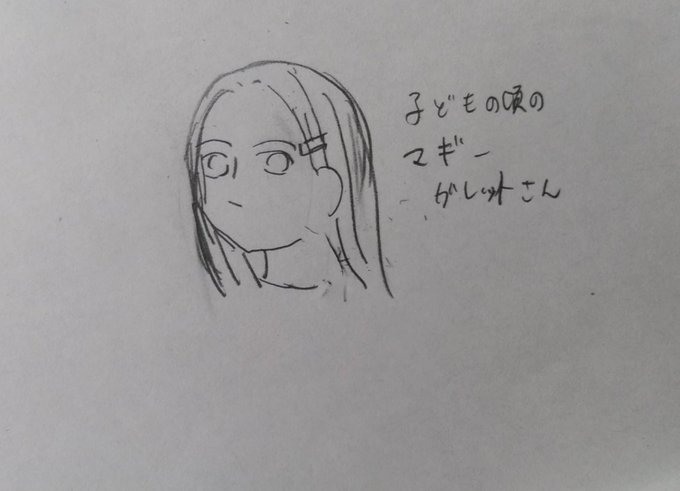 子どもの頃の
マギー
ガレットさん